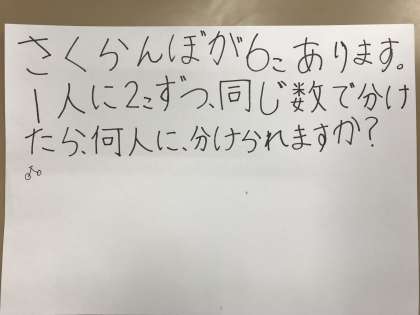 さくらんぼが6こあります。
1人に2こずつ、同じ数で分け
たら、何人に、分けられますか?